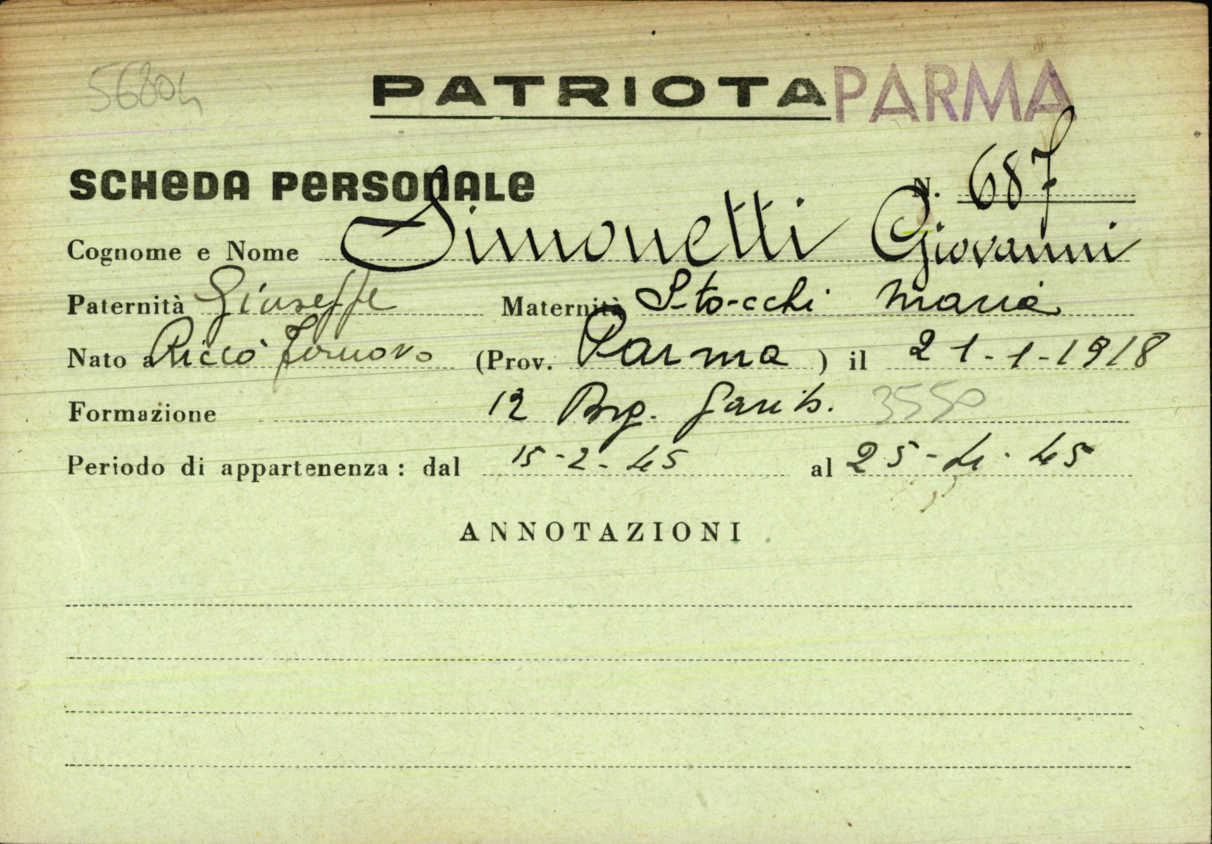 56804 PATRIOTA PARMA
SCHEDA PERSONALE N. 687
Cognome e Nome Simonetti Giovanni
Paternità Giuseppe Maternità Stocchi Maria
Nato a Riccò Fornovo (Prov. Parma ) il 21-1-1918
Formazione 12 Brg. Garib. 3550
Periodo di appartenenza : dal 15-2-45 al 25-4-45
ANNOTAZIONI